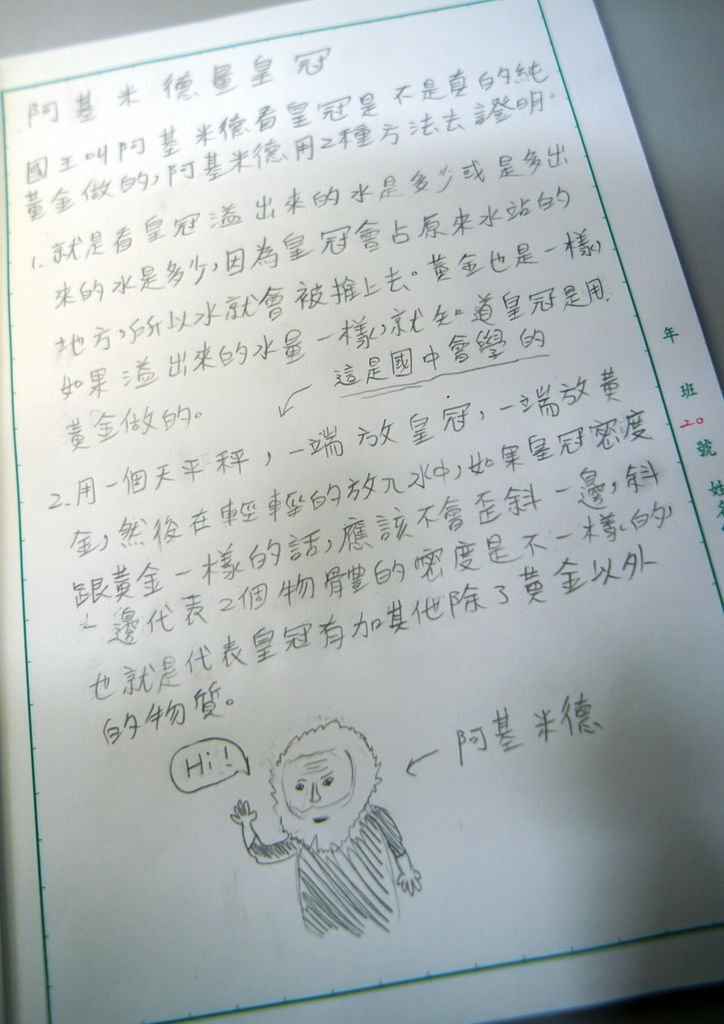 阿基米德量皇冠
國王叫阿基米德看皇冠是不是真的純
黃金做的,阿基米德用2種方法去證明。
1. 就是看皇冠溢出來的水是多少或是多出
來的水是多少,因為皇冠會占原來水站的
地方,所以水就會被推上去。黃金也是一樣,
如果溢出來的水量一樣,就知道皇冠是用
黃金做的。
這是國中會學的
2. 用一個天平秤,一端放皇冠,一端放黃
金,然後在輕輕的放入水中,如果皇冠密度
跟黃金一樣的話,應該不會歪斜一邊,斜
一邊代表2個物體的密度是不一樣的,
也就是代表皇冠有加其他除了黃金以外
的物質。
Hi!
阿基米德
年
班
20
號
姓